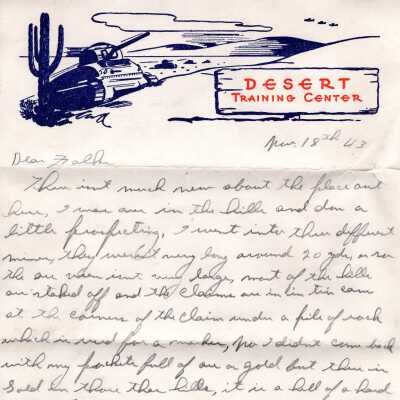 DESERT
TRAINING CENTER
Nov. 18th 43
Dear Folks
There isnt much new about the place out
here, I was over in the hills and don a
little prospecting, I went into three different
mines, they werent very long around 20 yds, or so
the ore vein isnt very large, most of the hills
are staked off and the claims are in tin cans
at the corners of the claim under a pile of rock
which is used for a marker, no I didnt come back
with my pockets full of ore or gold but there is
Gold in those thar hills, it is a hell of a hard